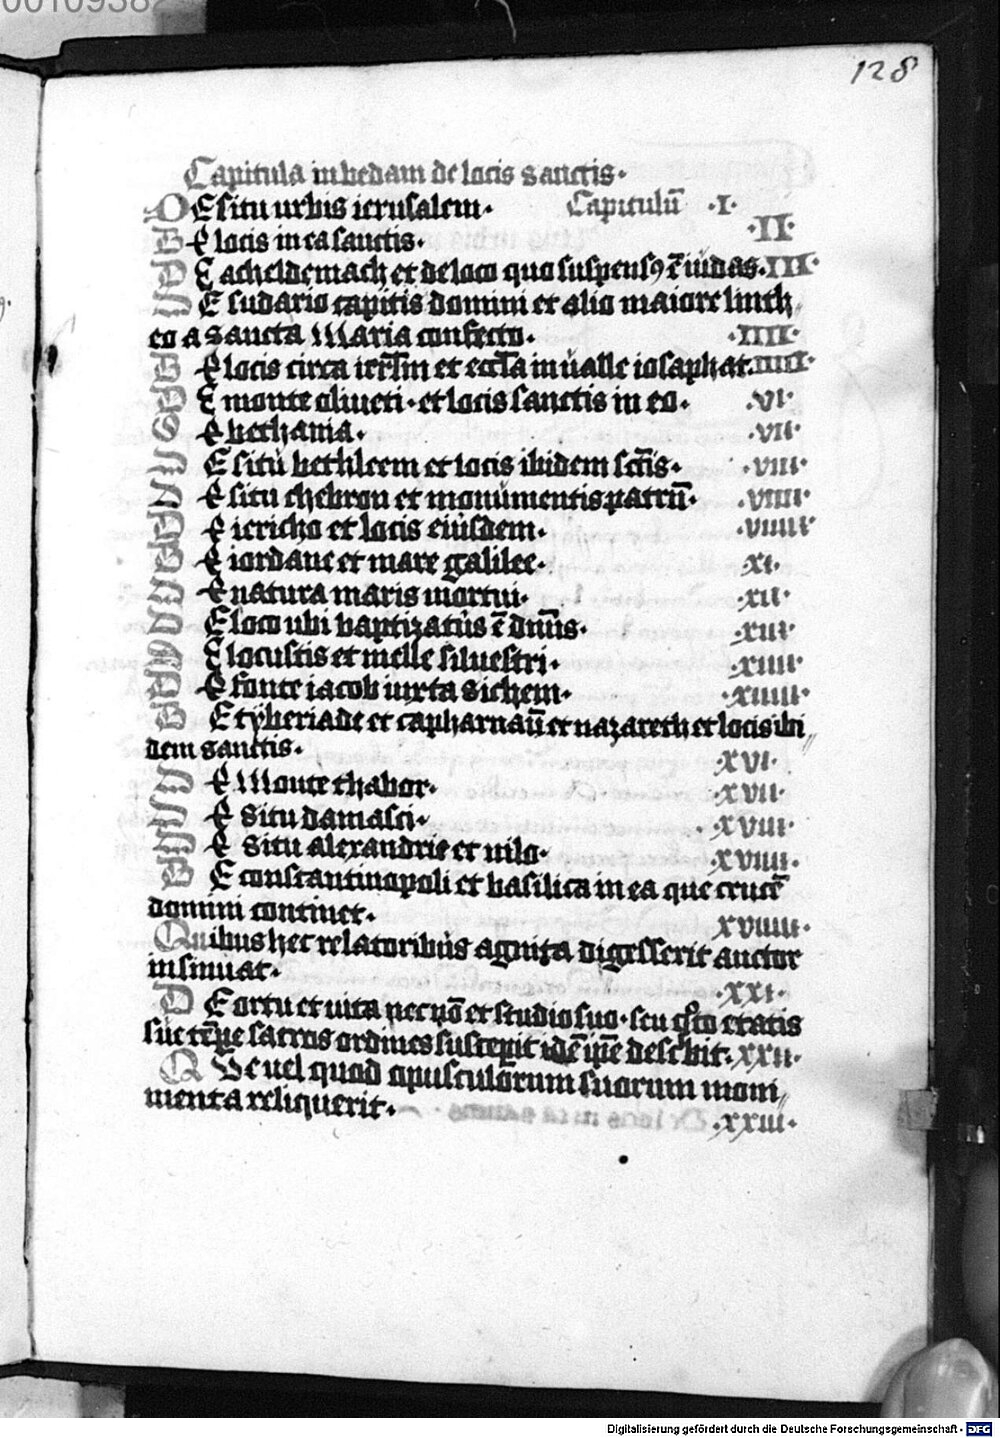 0010938
128
Capitula in bedam de locis sanctis.
DE situ urbis ierusalem. Capitulū .I.
DE locis in ea sanctis. .II.
DE acheldemach et de loco quo suspensꝰ ē iudas. .III.
DE sudario capitis domini et alio maiore linth
eo a sancta Maria confecto. .IIII.
DE locis circa ierl̄m et eccl̄a in ualle iosaphat. .IIIII.
DE monte oliueti. et locis sanctis in eo. .VI.
DE bethania. .VII.
DE situ bethleem et locis ibidem sc̄tis. .VIII.
DE situ chebron et monumentis patrū. .VIIII.
DE iericho et locis eiusdem. .VIIIII.
DE iordane et mare galilee. .XI.
DE natura maris mortui. .XII.
DE loco ubi baptizatus ē dn̄us. .XIII.
DE locustis et melle siluestri. .XIIII.
DE fonte iacob iuxta sichem. .XIIIII.
DE tyberiade et capharnaū et nazareth et locis ibi
dem sanctis. .XVI.
DE Monte thabor. .XVII.
DE situ damasci. .XVIII.
DE situ alexandrie et nilo. .XVIIII.
DE constantinopoli et basilica in ea que crucē
domini continet. .XVIIIII.
Quibus hec relatoribus agnita digesserit auctor
insinuat. .XXI.
DE ortu et uita necnō et studio suo. seu qͦto etatis
sue tēpe sacros ordines suscepit idē ip̄e desc͛bit. .XXII.
Que uel quod opusculorum suorum moni
menta reliquerit. .XXIII.
Digitalisierung gefördert durch die Deutsche Forschungsgemeinschaft - DFG